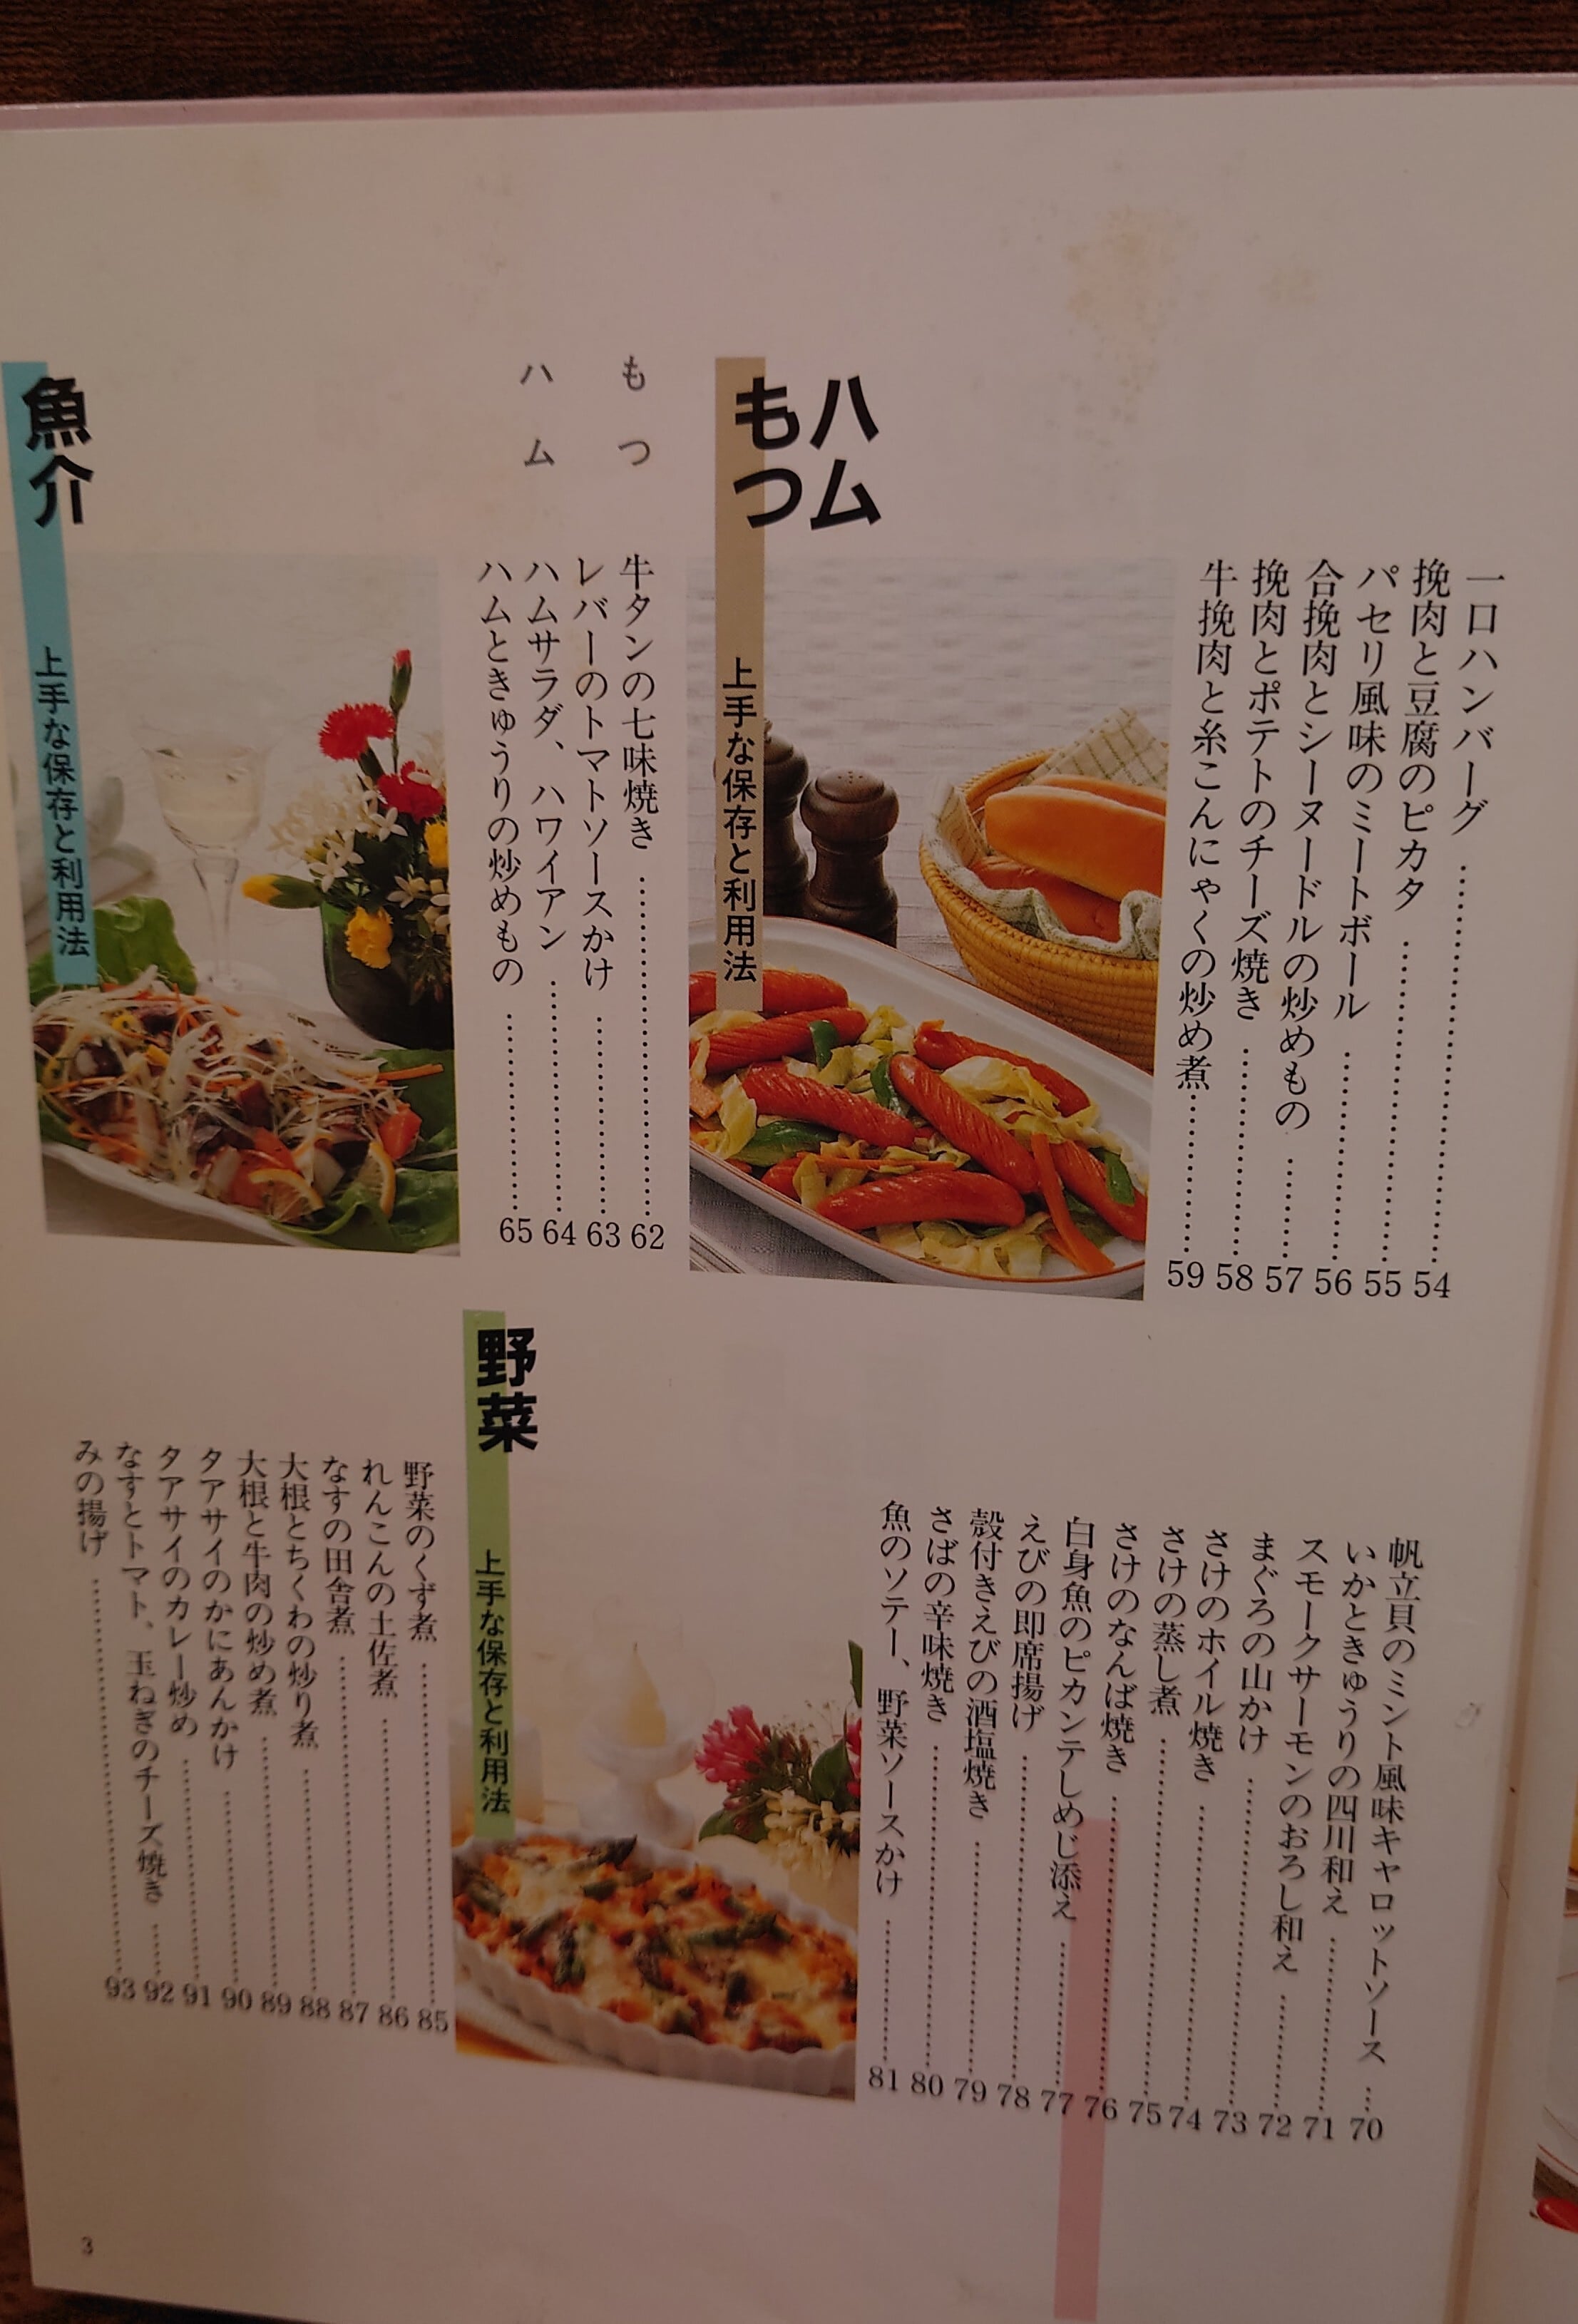 一口ハンバーグ……54
挽肉と豆腐のピカタ……55
パセリ風味のミートボール……56
合挽肉とシーヌードルの炒めもの……57
挽肉とポテトのチーズ焼き……58
牛挽肉と糸こんにゃくの炒め煮……59
ハム
もつ
上手な保存と利用法
もつ
牛タンの七味焼き……62
レバーのトマトソースかけ……63
ハム
ハムサラダ、ハワイアン……64
ハムときゅうりの炒めもの……65
魚介
上手な保存と利用法
帆立貝のミント風味キャロットソース…70
いかときゅうりの四川和え……71
スモークサーモンのおろし和え……72
まぐろの山かけ……73
さけのホイル焼き……74
さけの蒸し煮……75
さけのなんば焼き……76
白身魚のピカンテしめじ添え……77
えびの即席揚げ……78
殻付きえびの酒塩焼き……79
さばの辛味焼き……80
魚のソテー、野菜ソースかけ……81
野菜
上手な保存と利用法
野菜のくず煮……85
れんこんの土佐煮……86
なすの田舎煮……87
大根とちくわの炒り煮……88
大根と牛肉の炒め煮……89
タアサイのかにあんかけ……90
タアサイのカレー炒め……91
なすとトマト、玉ねぎのチーズ焼き……92
みの揚げ……93
3